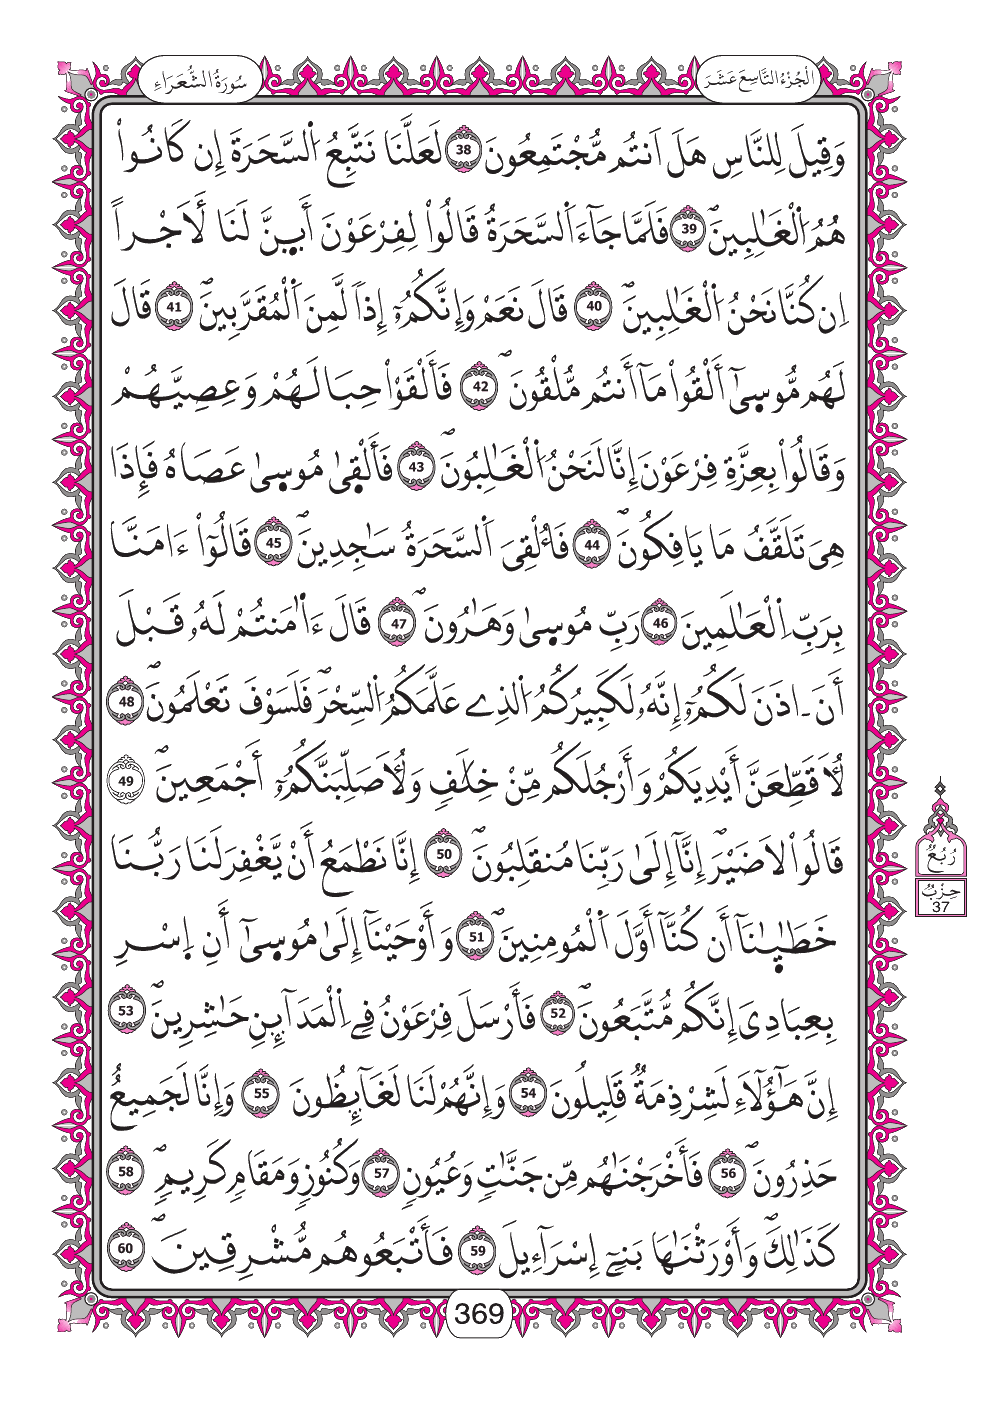 سُورَةُ الشُّعَرَاءِ
الْجُزْءُ التَّاسِعَ عَشَرَ
وَقِيلَ لِلنَّاسِ هَلَ اَنتُم مُّجْتَمِعُونَ 38 لَعَلَّنَا نَتَّبِعُ اُ۬لسَّحَرَةَ إِن كَانُواْ
هُمُ اُ۬لْغَٰلِبِينَۖ 39 فَلَمَّا جَآءَ اَ۬لسَّحَرَةُ قَالُواْ لِفِرْعَوْنَ أَٮِٕنَّ لَنَا لَأَجْراً
اِن كُنَّا نَحْنُ اُ۬لْغَٰلِبِينَۖ 40 قَالَ نَعَمْ وَإِنَّكُمُۥٓ إِذاٗ لَّمِنَ اَ۬لْمُقَرَّبِينَۖ 41 قَالَ
لَهُم مُّوسِيٰٓ أَلْقُواْ مَآ أَنتُم مُّلْقُونَۖ 42 فَأَلْقَوْاْ حِبَالَهُمْ وَعِصِيَّهُمْ
وَقَالُواْ بِعِزَّةِ فِرْعَوْنَ إِنَّا لَنَحْنُ اُ۬لْغَٰلِبُونَۖ 43 فَأَلْقِيٰ مُوسِيٰ عَصَاهُ فَإِذَا
هِيَ تَلَقَّفُ مَا يَافِكُونَۖ 44 فَأُلْقِيَ اَ۬لسَّحَرَةُ سَٰجِدِينَۖ 45 قَالُوٓاْ ءَامَنَّا
بِرَبِّ اِ۬لْعَٰلَمِينَ 46 رَبِّ مُوسِيٰ وَهَٰرُونَۖ 47 قَالَ ءَاٰ۬مَنتُمْ لَهُۥ قَبْلَ
أَنَ اٰذَنَ لَكُمُۥٓ إِنَّهُۥ لَكَبِيرُكُمُ اُ۬لذِے عَلَّمَكُمُ اُ۬لسِّحْرَۖ فَلَسَوْفَ تَعْلَمُونَۖ 48
لَأُقَطِّعَنَّ أَيْدِيَكُمْ وَأَرْجُلَكُم مِّنْ خِلَٰفٖ وَلَأُصَلِّبَنَّكُمُۥٓ أَجْمَعِينَۖ 49
قَالُواْ لَا ضَيْرَۖ إِنَّآ إِلَىٰ رَبِّنَا مُنقَلِبُونَۖ 50 إِنَّا نَطْمَعُ أَنْ يَّغْفِرَ لَنَا رَبُّنَا
خَطَٰيٰ۪نَآ أَن كُنَّآ أَوَّلَ اَ۬لْمُومِنِينَۖ 51 وَأَوْحَيْنَآ إِلَىٰ مُوسِيٰٓ أَنِ اِ۪سْرِ
بِعِبَادِيَ إِنَّكُم مُّتَّبَعُونَۖ 52 فَأَرْسَلَ فِرْعَوْنُ فِے اِ۬لْمَدَآئِنِ حَٰشِرِينَۖ 53
إِنَّ هَٰٓؤُلَآءِ لَشِرْذِمَةٞ قَلِيلُونَ 54 وَإِنَّهُمْ لَنَا لَغَآئِظُونَ 55 وَإِنَّا لَجَمِيعٌ
حَذِرُونَۖ 56 فَأَخْرَجْنَٰهُم مِّن جَنَّٰتٖ وَعُيُونٖ 57 وَكُنُوزٖ وَمَقَامٖ كَرِيمٖۖ 58
كَذَٰلِكَۖ وَأَوْرَثْنَٰهَا بَنِےٓ إِسْرَآءِيلَ 59 فَأَتْبَعُوهُم مُّشْرِقِينَۖ 60
رُبُعُ
حِزْبُ
37
369